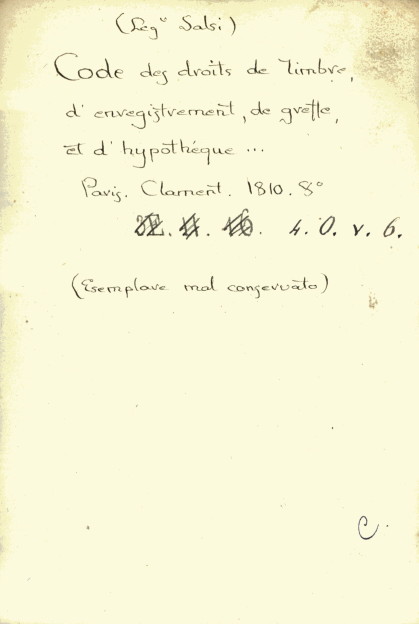 (Leg° Salsi)
Code des droits de timbre,
d'enregistrement, de greffe,
et d'hypothéque ...
Paris. Clament. 1810. 8°
4. O. v. 6.
(Esemplare mal conservato)
C.